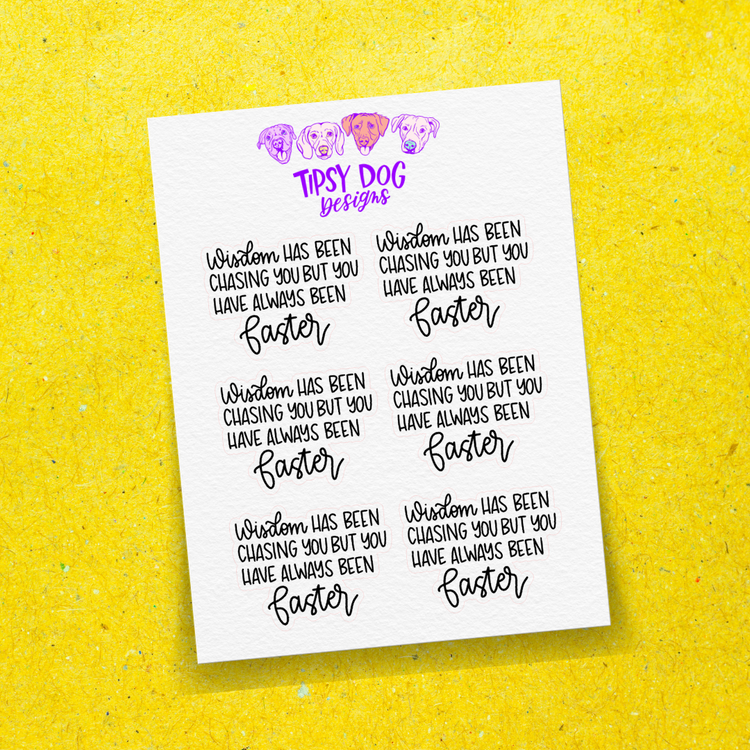 TIPSY DOG
Designs
Wisdom HAS BEEN
CHASING YOU BUT YOU
HAVE ALWAYS BEEN
faster
Wisdom HAS BEEN
CHASING YOU BUT YOU
HAVE ALWAYS BEEN
faster
Wisdom HAS BEEN
CHASING YOU BUT YOU
HAVE ALWAYS BEEN
faster
Wisdom HAS BEEN
CHASING YOU BUT YOU
HAVE ALWAYS BEEN
faster
Wisdom HAS BEEN
CHASING YOU BUT YOU
HAVE ALWAYS BEEN
faster
Wisdom HAS BEEN
CHASING YOU BUT YOU
HAVE ALWAYS BEEN
faster